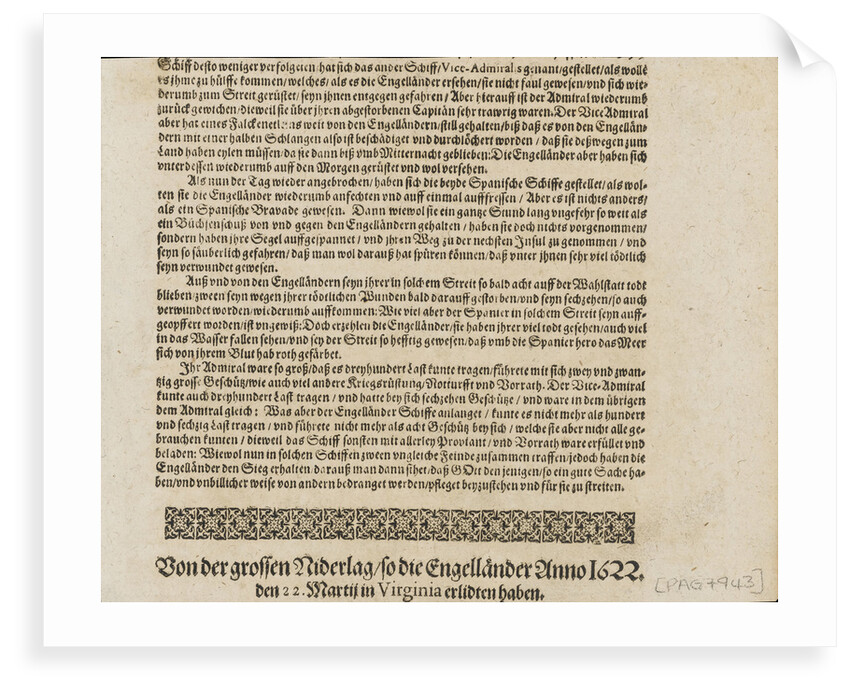 Schiff desto weniger verfolgeten/hat sich das ander Schiff/Vice-Admirals genant/gestellet/als wolle
es jhme zu hülffe kommen/welches/als es die Engelländer ersehen/sie nicht faul gewesen/vnd sich wie-
derumb zum Streit gerüstet/seyn jhnen entgegen gefahren/Aber hierauff ist der Admiral wiederumb
zurück gewichen/dieweil sie über jhren abgestorbenen Capitän sehr trawrig waren. Der Vice Admiral
aber hat eines Falckenetleins weit von den Engelländern/still gehalten/biß daß es von den Engellän-
dern mit einer halben Schlangen also ist beschädiget vnd durchlöchert worden/daß sie deßwegen zum
Land haben eylen müssen/da sie dann biß vmb Mitternacht geblieben: Die Engelländer aber haben sich
vnterdessen wiederumb auff den Morgen gerüstet vnd wol versehen.
Als nun der Tag wieder angebrochen/haben sich die beyde Spanische Schiffe gestellet/als wol-
ten sie die Engelländer wiederumb anfechten vnd auff einmal aufffressen/Aber es ist nichts anders/
als ein Spanische Bravade gewesen. Dann wiewol sie ein gantze Stund lang vngefehr so weit als
ein Büchsenschuß von vnd gegen den Engelländern gehalten/haben sie doch nichts vorgenommen/
sondern haben jhre Segel auffgespannet/vnd jhren Weg zu der nechsten Insul zu genommen/vnd
seyn so säuberlich gefahren/daß man wol darauß hat spüren können/daß vnter jhnen sehr viel tödtlich
seyn verwundet gewesen.
Auß vnd von den Engelländern seyn jhrer in solchem Streit so bald acht auff der Wahlstatt todt
blieben/zween seyn wegen jhrer tödtlichen Wunden bald darauff gestorben/vnd seyn sechzehen/so auch
verwundet worden/wiederumb auffkommen: Wie viel aber der Spanier in solchem Streit seyn auff-
geopffert worden/ist vngewiß: Doch erzehlen die Engelländer/sie haben jhrer viel todt gesehen/auch viel
in das Wasser fallen sehen/vnd sey der Streit so hefftig gewesen/daß vmb die Spanier hero das Meer
sich von jhrem Blut hab roth gefärbet.
Ihr Admiral ware so groß/daß es dreyhundert Last kunte tragen/führete mit sich zwey vnd zwan-
tzig grosse Geschütz/wie auch viel andere Kriegsrüstung/Notturfft vnd Vorrath. Der Vice-Admiral
kunte auch dreyhundert Last tragen/vnd hatte bey sich sechzehen Geschütze/vnd ware in dem übrigen
dem Admiral gleich: Was aber der Engelländer Schiffe anlanget/kunte es nicht mehr als hundert
vnd sechzig Last tragen/vnd führete nicht mehr als acht Geschütz bey sich/welche sie aber nicht alle ge-
brauchen kunten/dieweil das Schiff sonsten mit allerley Proviant/vnd Vorrath ware erfüllet vnd
beladen: Wiewol nun in solchen Schiffen zween vngleiche Feinde zusammen traffen/jedoch haben die
Engelländer den Sieg erhalten/darauß man dann sihet/daß GOtt den jenigen/so ein gute Sache ha-
ben/vnd vnbillicher weise von andern bedranget werden/pfleget beyzustehen vnd für sie zu streiten.
Von der grossen Niderlag/so die Engelländer Anno 1622.
den 22. Martij in Virginia erlidten haben.
[PAG+943]